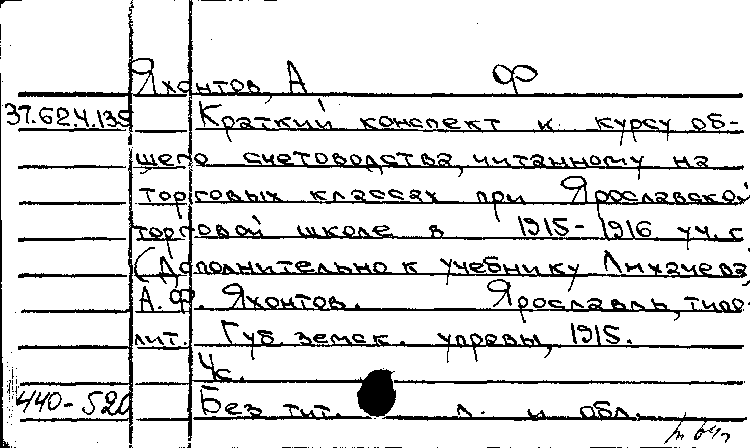 Яхонтов, А Ф
37.624.135 Краткий конспект к курсу об-
щего счетоводства, читанному на
торговых классах при Ярославской
торговой школе в 1915-1916 уч. г
(Дополнительно к учебнику Лихачева,
А. Ф. Яхонтов. Ярославль, типо
лит. Губ. земск. управы, 1915.
4с.
440-520 Без тит. л. и обл.